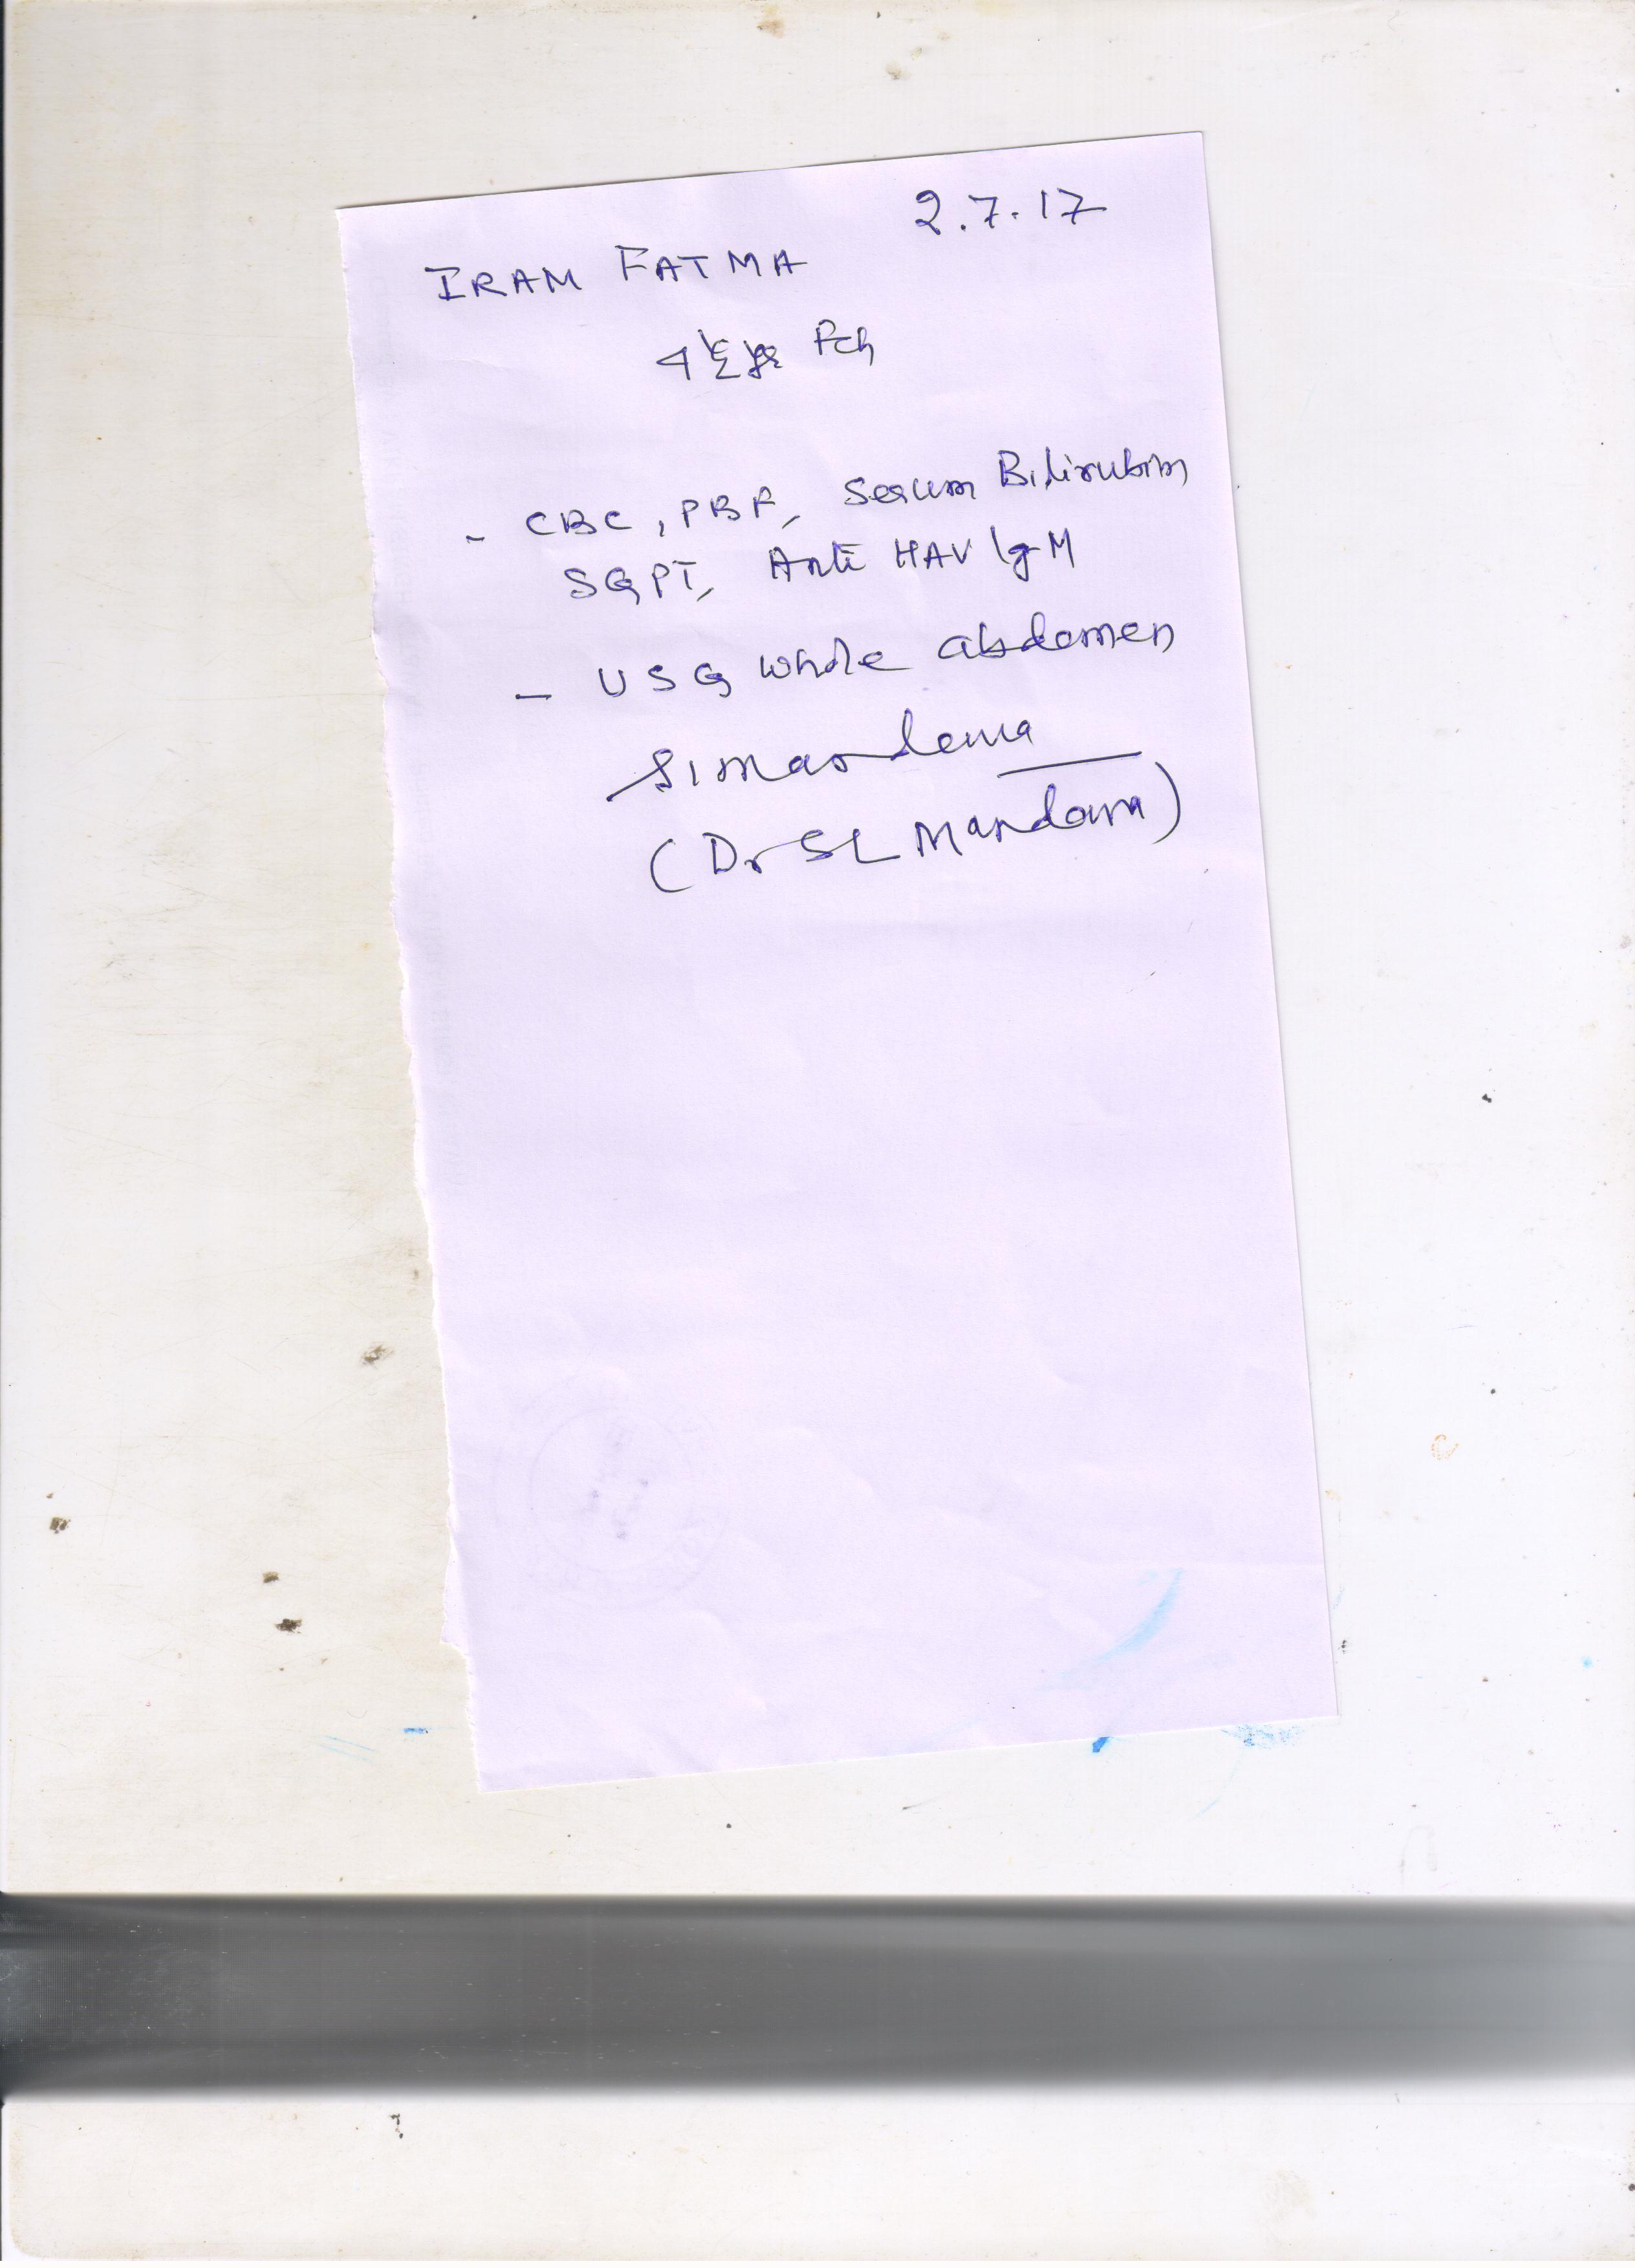 2.7.17
IRAM FATMA
4½ yr Fch
- CBC, PBF, Serum Bilirubin
SGPT, Anti HAV IgM
- USG whole abdomen
(Dr SL Mandawa)